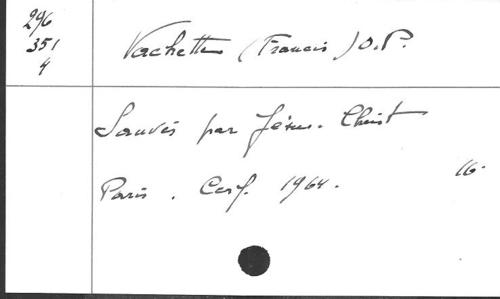 296
351
4
Vachette (Francis) O.P.
Sauvés par Jésus-Christ
Paris. Cerf. 1964.
16.